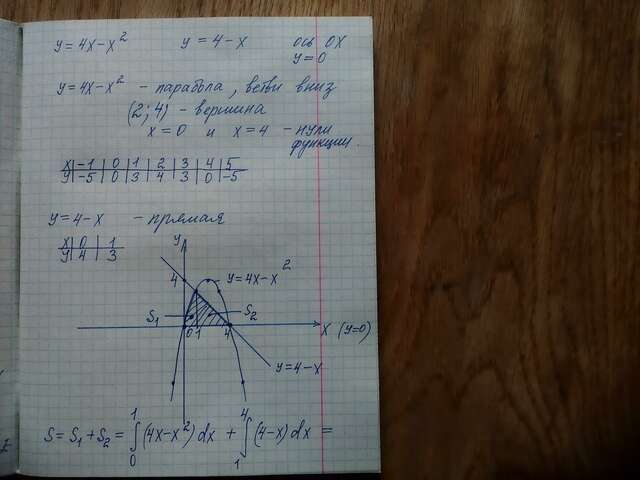 y=4x-x² y=4-x ось OX
y=0
y=4x-x² - парабола, ветви вниз
(2; 4) - вершина
x=0 и x=4 - нули
функции.
x -1 0 1 2 3 4 5
y -5 0 3 4 3 0 -5
y=4-x - прямая
x 0 1
y 4 3
y
4 y=4x-x²
S₁ S₂
0 1 4 x (y=0)
y=4-x
S=S₁+S₂=∫₀¹(4x-x²)dx+∫₁⁴(4-x)dx=